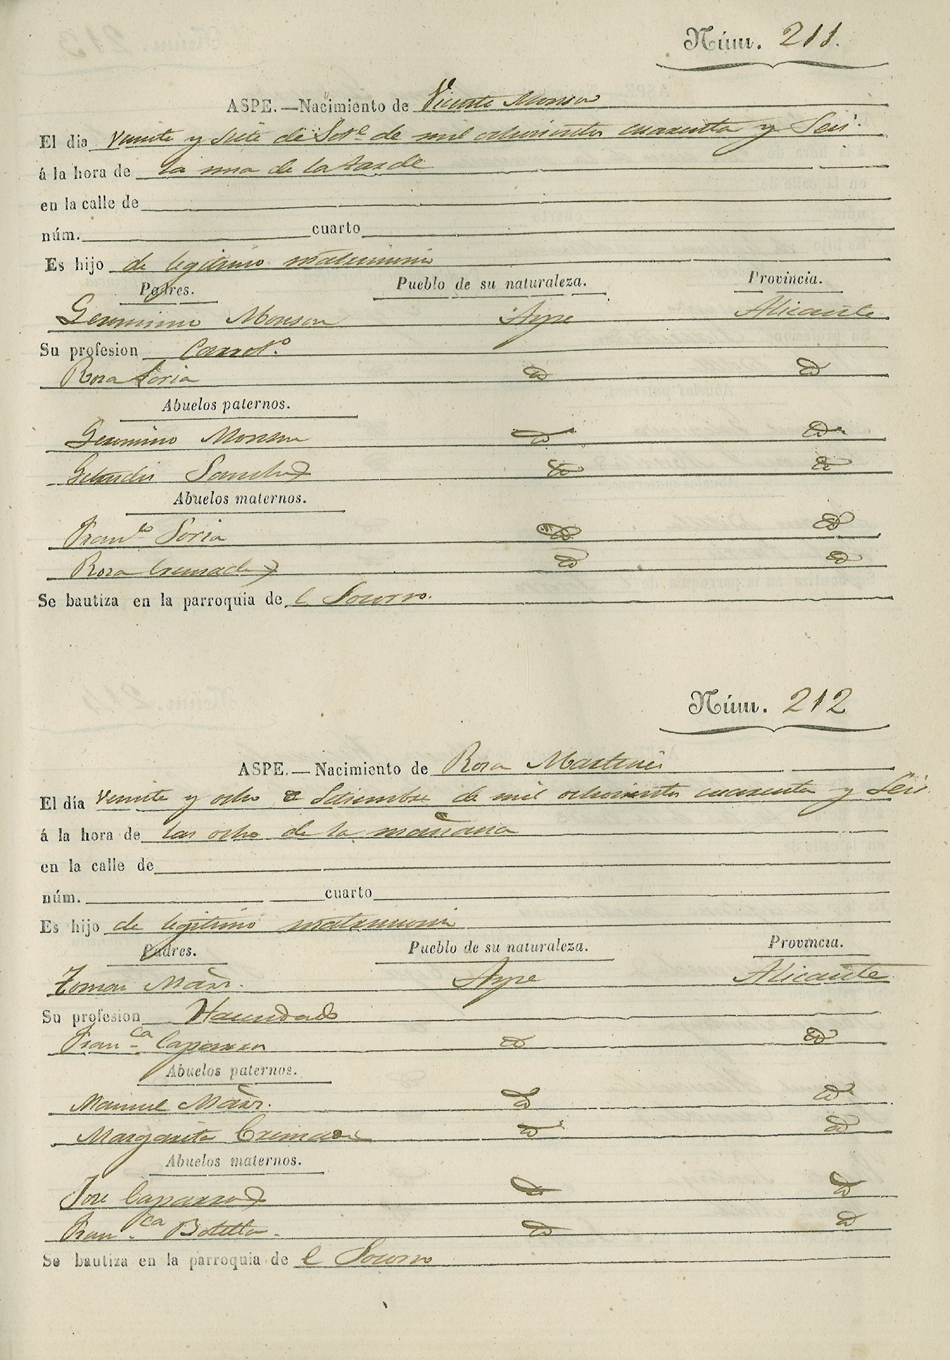 Núm. 211.
ASPE.—Nacimiento de Vicente Monson
El dia veinte y siete de Set.e de mil ochocientos cuarenta y Seis.
á la hora de la una de la tarde
en la calle de
núm. cuarto
Es hijo de legitimo matrimonio
Padres. Pueblo de su naturaleza. Provincia.
Geronimo Monson Aspe Alicante
Su profesion
Rosa Soria id id
Abuelos paternos.
Geronimo Monson id id
Gertrudis Sanchez id id
Abuelos maternos.
Fran.co Soria id id
Rosa Cremades id id
Se bautiza en la parroquia de l Socorro.
Núm. 212
ASPE.—Nacimiento de Rosa Martinez
El día veinte y ocho de Setiembre de mil ochocientos cuarenta y Seis
á la hora de las ocho de la mañana
en la calle de
núm. cuarto
Es hijo de legitimo matrimonio
Padres. Pueblo de su naturaleza. Provincia.
Tomas Marz. Aspe Alicante
Su profesion Hacendado
Fran.ca Caparros id id
Abuelos paternos.
Manuel Marz. id id
Margarita Cremades id id
Abuelos maternos.
Jose Caparros id id
Fran.ca Botella. id id
Se bautiza en la parroquia de l Socorro